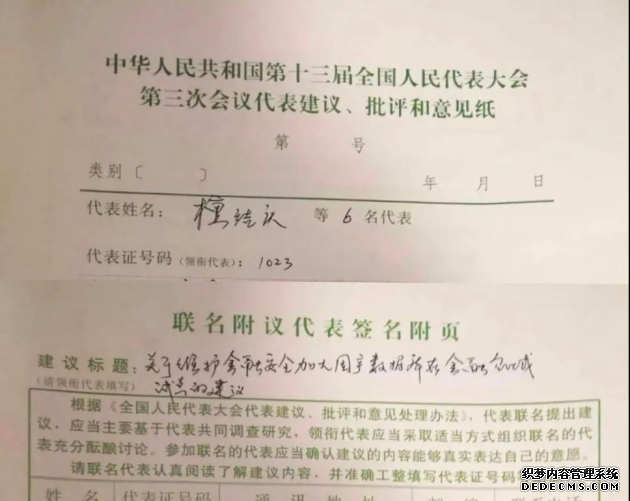 中华人民共和国第十三届全国人民代表大会
第三次会议代表建议、批评和意见纸
第 号
类别〔 〕 年 月 日
代表姓名： 庆 等 6 名代表
代表证号码（领衔代表）：1023
联名附议代表签名附页
建议标题：关于维护金融安全加大国产数据库在金融领域
（请领衔代表填写） 的建议
根据《全国人民代表大会代表建议、批评和意见处理办法》，代表联名提出建
议，应当主要基于代表共同调查研究，领衔代表应当采取适当方式组织联名的代
表充分酝酿讨论。参加联名的代表应当确认建议的内容能够真实表达自己的意愿。
请联名代表认真阅读了解建议内容，并准确工整填写代表证号码
织梦内容管理系统
DEDECMS.COM
姓 名 代表证号码 通 讯 地 址